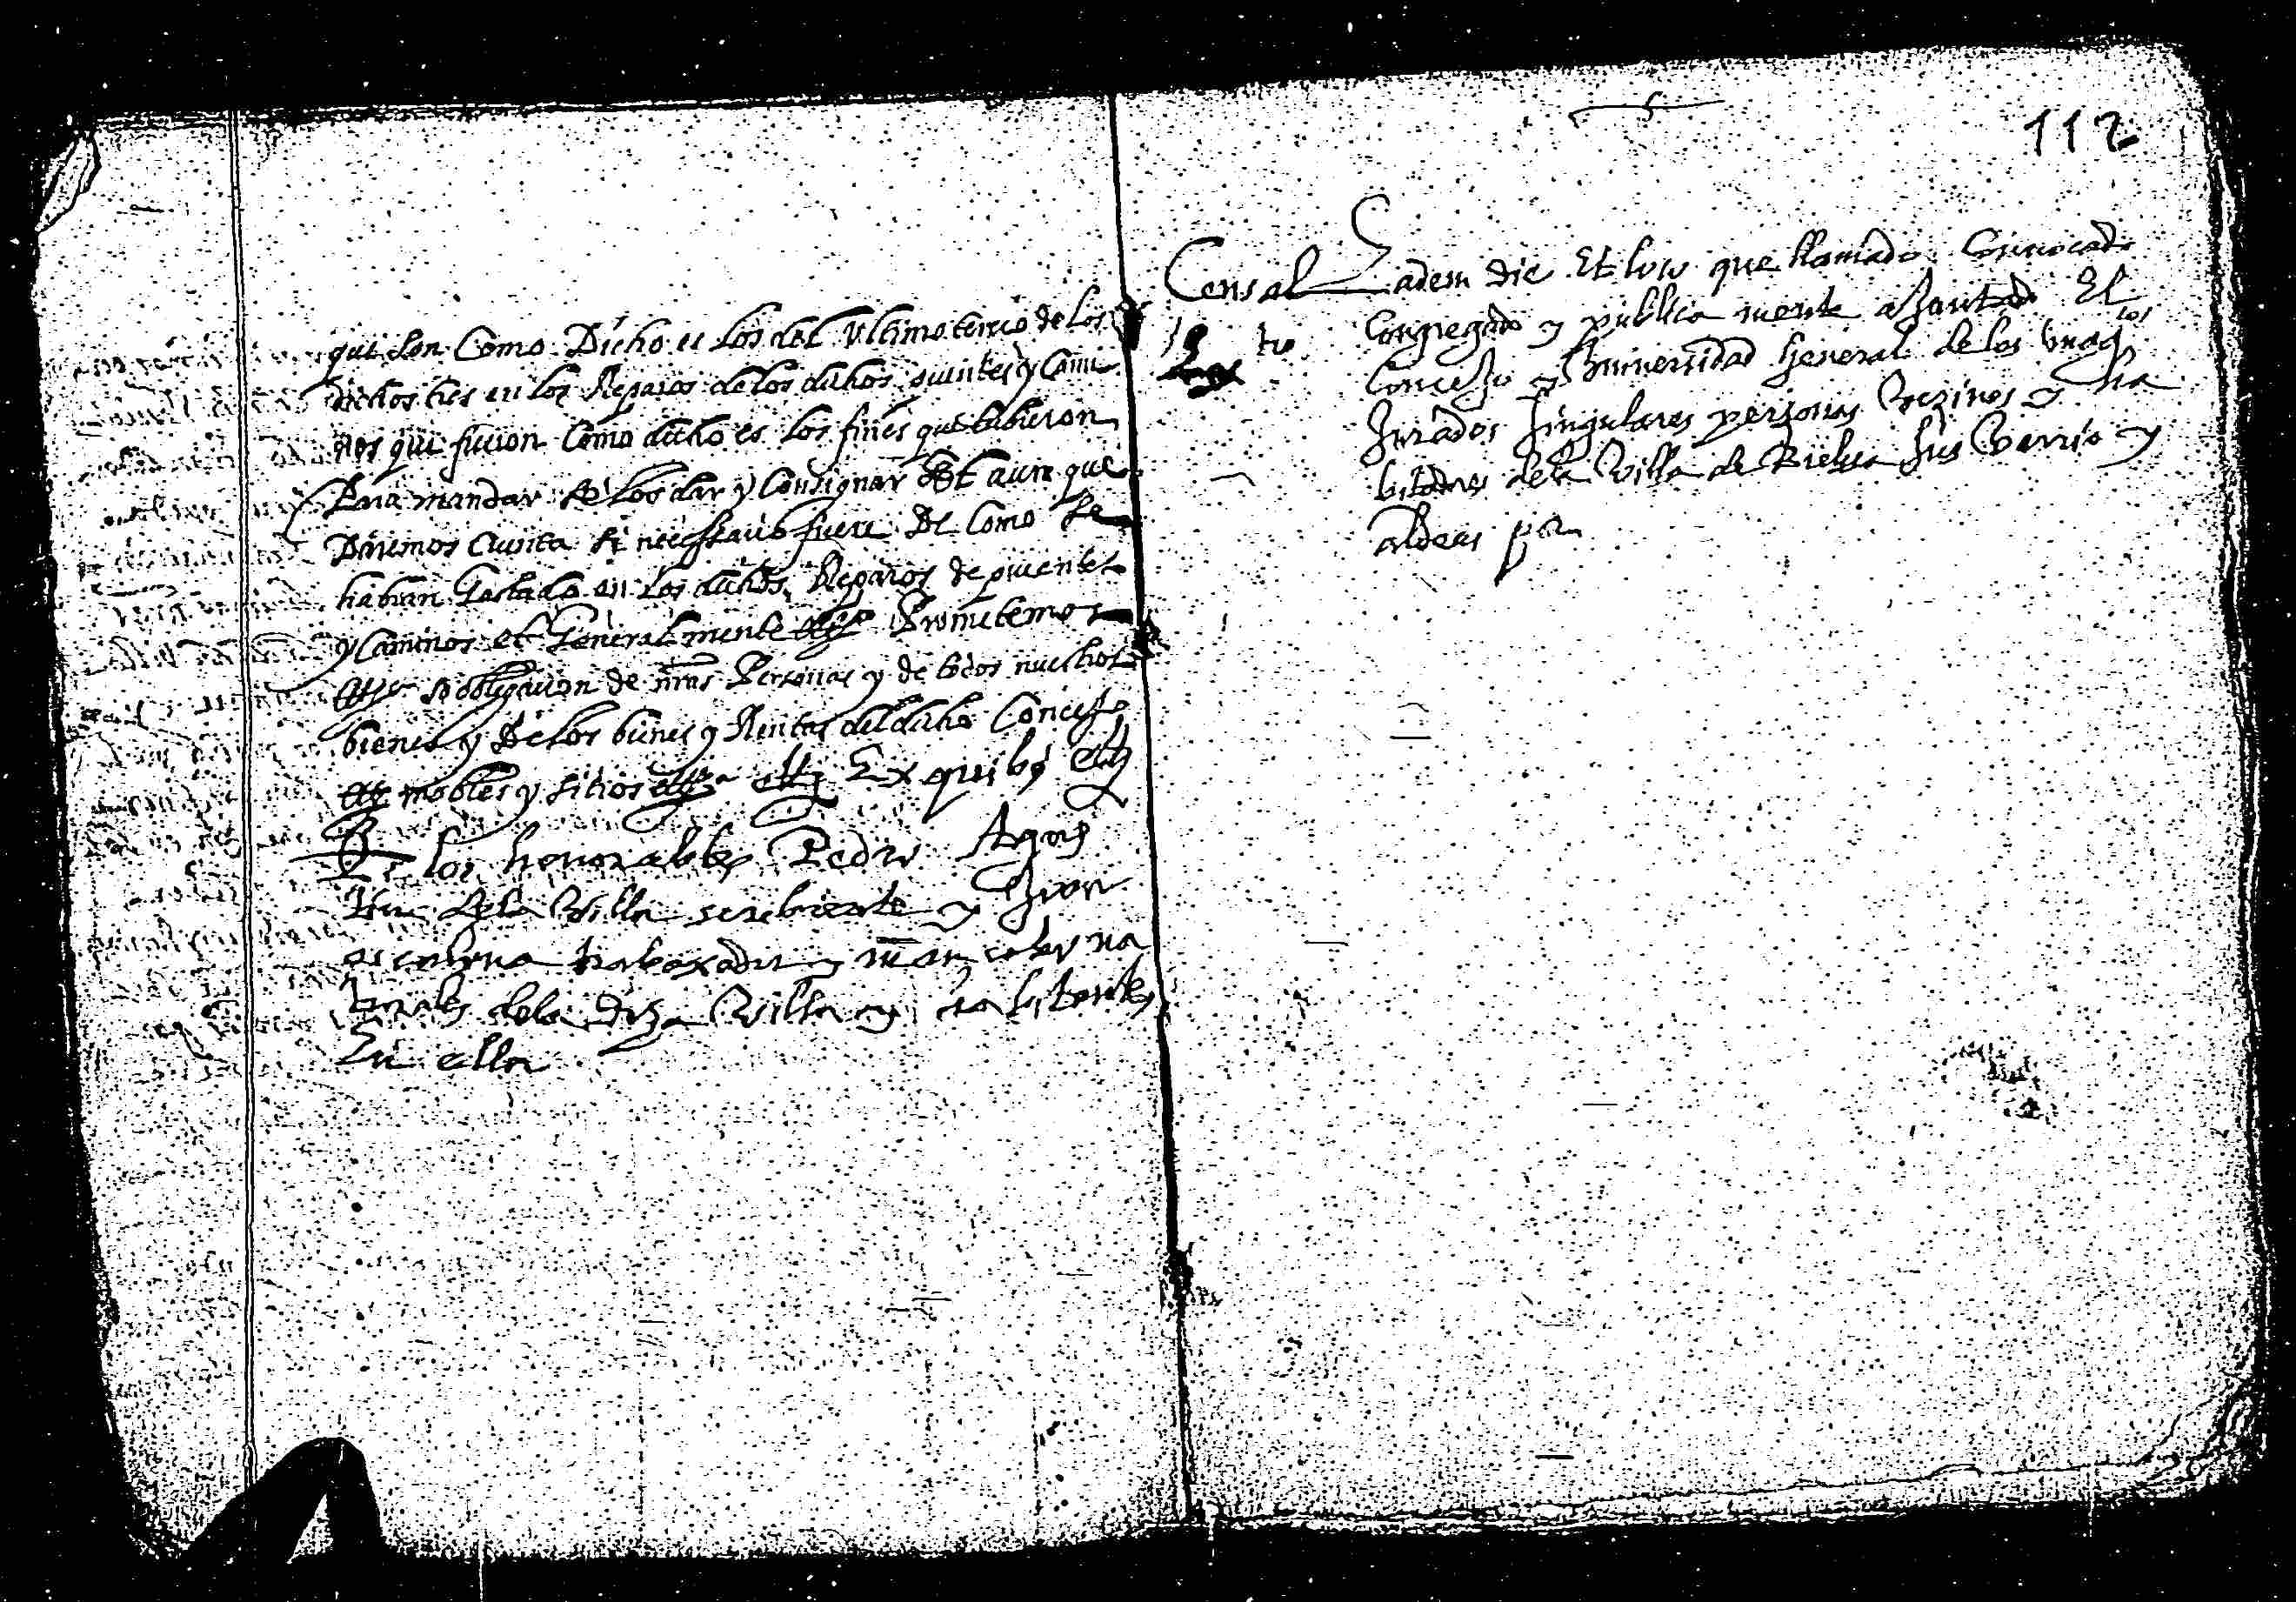 que son Como Dicho es los del Ultimo tercio de los
dichos tres en los Reparos de los dichos puentes y Cami
nos que fueron Como dicho es los fines que tubieron
Para mandar se los dar y Consignar Et aun que
Daremos Cuenta si necessario fuere De Como se
habian Gastado en los dichos Reparos de puentes
y Caminos et Generalmente Prometemos
so obligacion de nras Personas y de todos nuestros
bienes y De los bienes y Rentas del dicho Concejo
mobles y sitios etc Ex quibus etc
Ts los honorables Pedro
de la Villa scribiente y Juan
trabaxador
de la dicha Villa y habitantes
En ella
112
Censal Eadem die Et loco que llamado Convocado
Congregado y publica mente ajuntado El
Concejo y Universidad General de los mag cos
Jurados singulares personas Vezinos y ha
bitadores de la Villa de Bielsa sus Barrio y
aldeas pa